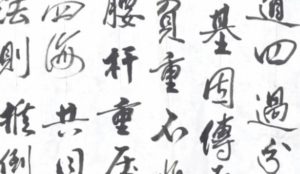 四過
基因傳
負重不
腰杆重
四海共同
法則推倒